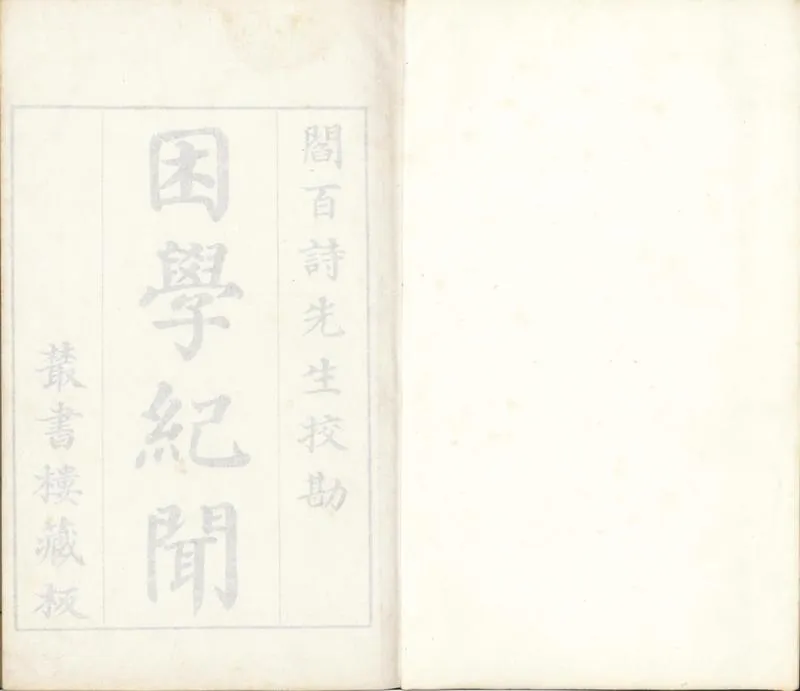 閻百詩先生挍勘
困學紀聞
叢書樓藏板